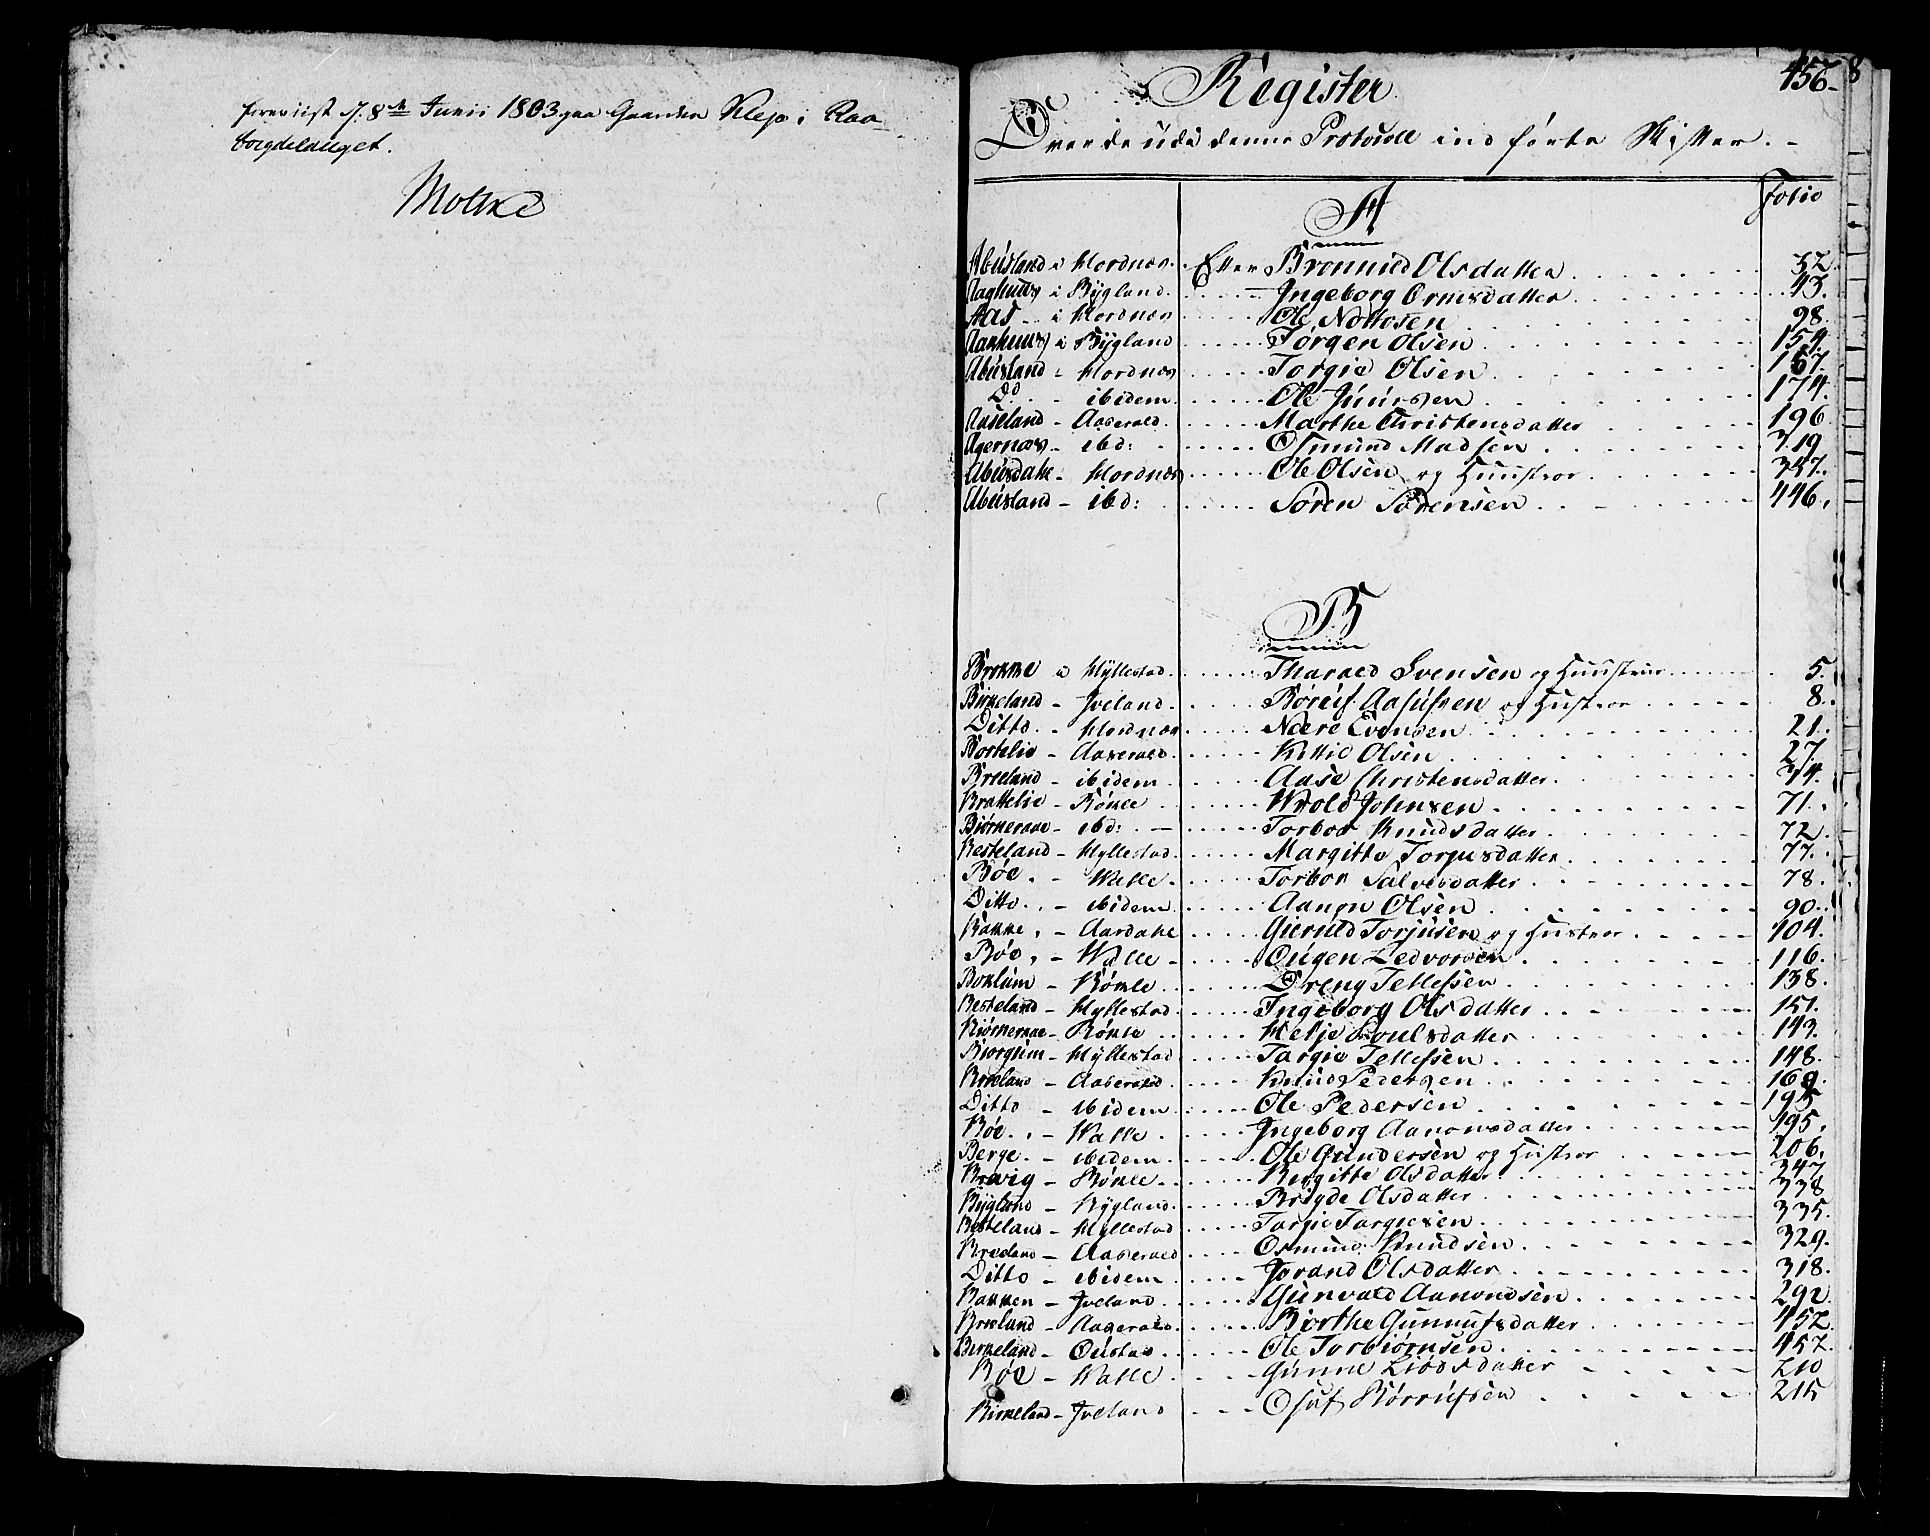 foreviist d: 8de Junii 1803 paa Gaarden Klep i Raa-
bøigdelauget.
Moltke
456
8
Register
Over de udi denne Protocoll indførte Skifter.
Folio
A
Abusland i Hordnæs .. Efter Bronnild Olsdatter 32.
Aaghuus i Bygland – Ingeborg Ormsdatter 43.
Aas i Hordnæs Ole Nottosen 98.
Aakhuus i Bygland Jørgen Olsen 154.
Abusland - Hordnæs Torgie Olsen 157.
Do - ibidem Ole Juursen 174.
Aaseland - Aaserald Marthe Christensdatter 196
Agernæs - ibd: Osmund Madsen 319
Abusdahl - Hordnæs Ole Olsen og Huustroe 357.
Abusland - ibd: Søren Sørensen 446.
B
Brokke i Hyllestad Tharald Svensen og Huustrue 5.
Birkeland - Iveland Børeuf Aasufsen og Hustroe 8.
Ditto - Hordnæs Nære Evensen 21.
Bortelie - Aaserald Kittil Olsen 27.
Breeland - ibidem Aase Christensdatter 34.
Brattelie - Bøkle Wrold Johnsen 71.
Biørneraae - ibd: Torbor Knudsdatter 72.
Besteland - Hyllestad Margitte Torjusdatter 77.
Bøe - Walle Torbor Salvesdatter 78.
Ditto - ibidem Aanon Olsen 90.
Bakke - Aardahl Gieruld Torjusen og Hustroe 104.
Bøe - Walle Ougen Ledvorsen 116.
Boklum - Bøkle Dreng Tellefsen 138.
Besteland - Hyllestad Ingeborg Olsdatter 151.
Biørneraae - Bøkle Helje Poulsdatter 143.
Biorgum - Hyllestad Targie Tellefsen 148
Breeland - Aaserald Knud Pedersen 169.
Ditto - ibidem Ole Pedersen 193.
Bøe - Walle Ingeborg Aanonsdatter 195.
Berge - ibidem Ole Gundersen og Hustroe 206.
Breivig - Bøkle Bergitte Olsdatter 347
Bygland - Bygland Brigde Olsdatter 338
Besteland - Hyllestad Targie Targiesen 335.
Breeland - Aaserald Osmund Knudsen 329.
Ditto - ibidem Jorand Olsdatter 318.
Bakken - Iveland Gunvald Aanondsen 292.
Breeland - Aaserald Birthe Gunnufsdatter 452.
Berkeland - Oustad Ole Torbiørnsen 457.
Bøe - Walle Gunne Liodsdatter 210
Birkeland - Iveland Osuf Børrufsen 215